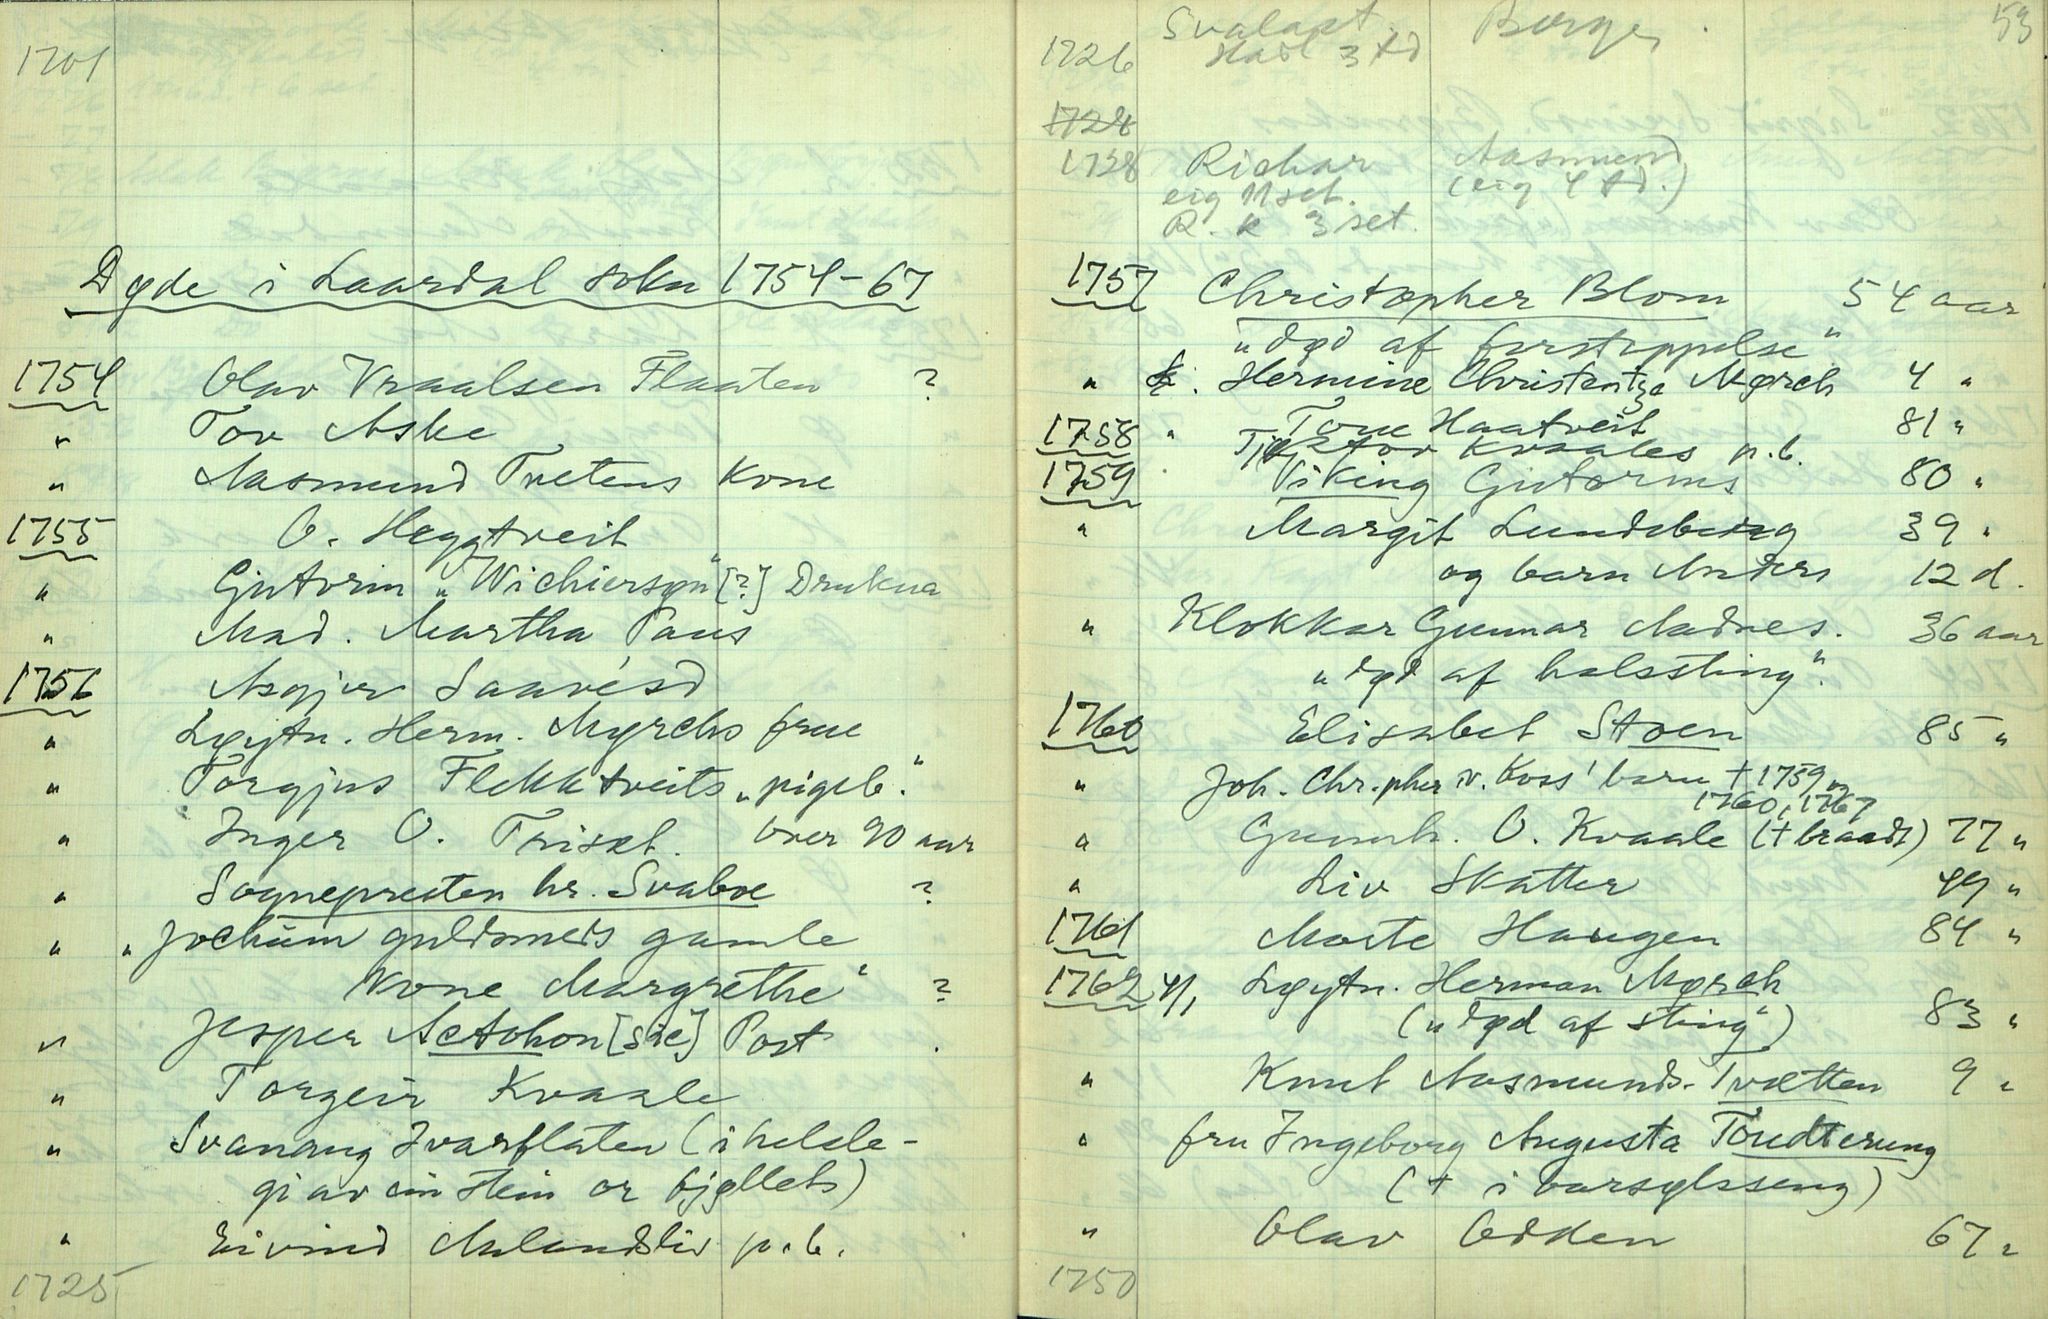 1701
Døde i Laardal sokn 1754-67
1754 Olav Vraalsen Flaaten ?
" Tov Aske
" Aasmund Tvetens kone
1755 O. Heggtveit
" Gjutorm „Wichiersøn" [?] Drukna
" Mad. Martha Paus
1756 Asgjer
" Løytn. Herm. Myrchs frue
" Torgjus Flekktveits „pigeb."
" Inger O. Triset. over 90 aar
" Sognepresten hr. Svaboe ?
" „Jochum guldsmeds gamle
kone Margrethe" ?
" Jesper Actohon [sic] Post
" Torgeir Kvaale
" Svanaug Ivarflaten (ihelsle-
gi av ein stein or fjellet)
" Eivind p.b.
1725
53
1726 Svalast Borge
3 td
1728
1728 Richar Aasmund
eig 11 set. (eig 4 td.)
R. k 3 set.
1757 Christopher Blom 54 aar
„død af forstoppelse"
" Hermine Christentze Mørch 4 "
" Tone Haatveit 81 "
1758 Kvaales p.b.
1759 Viking Gjutorms 80 "
" Margit Lundeberg 39 "
og barn Anders 12 d.
" Klokkar Gunnar Aadnes. 36 aar
„død af halssting".
1760 Elisabet Stoen 85 "
" Joh. Chr.pher v. Koss' barn † 1759 og
1760, 1767
" Gunnh. O. Kvaale († braadt) 77 "
" Liv Skatter 49 "
1761 Marte Haugen 84 "
1762 4/1 Løytn. Herman Mørch
(„død af sting") 83 "
" Knut Aasmunds. Tvætten 9 "
" fru Ingeborg Augusta Toudterung
(† i barsylsseng)
" Olav Odden 67 "
1750